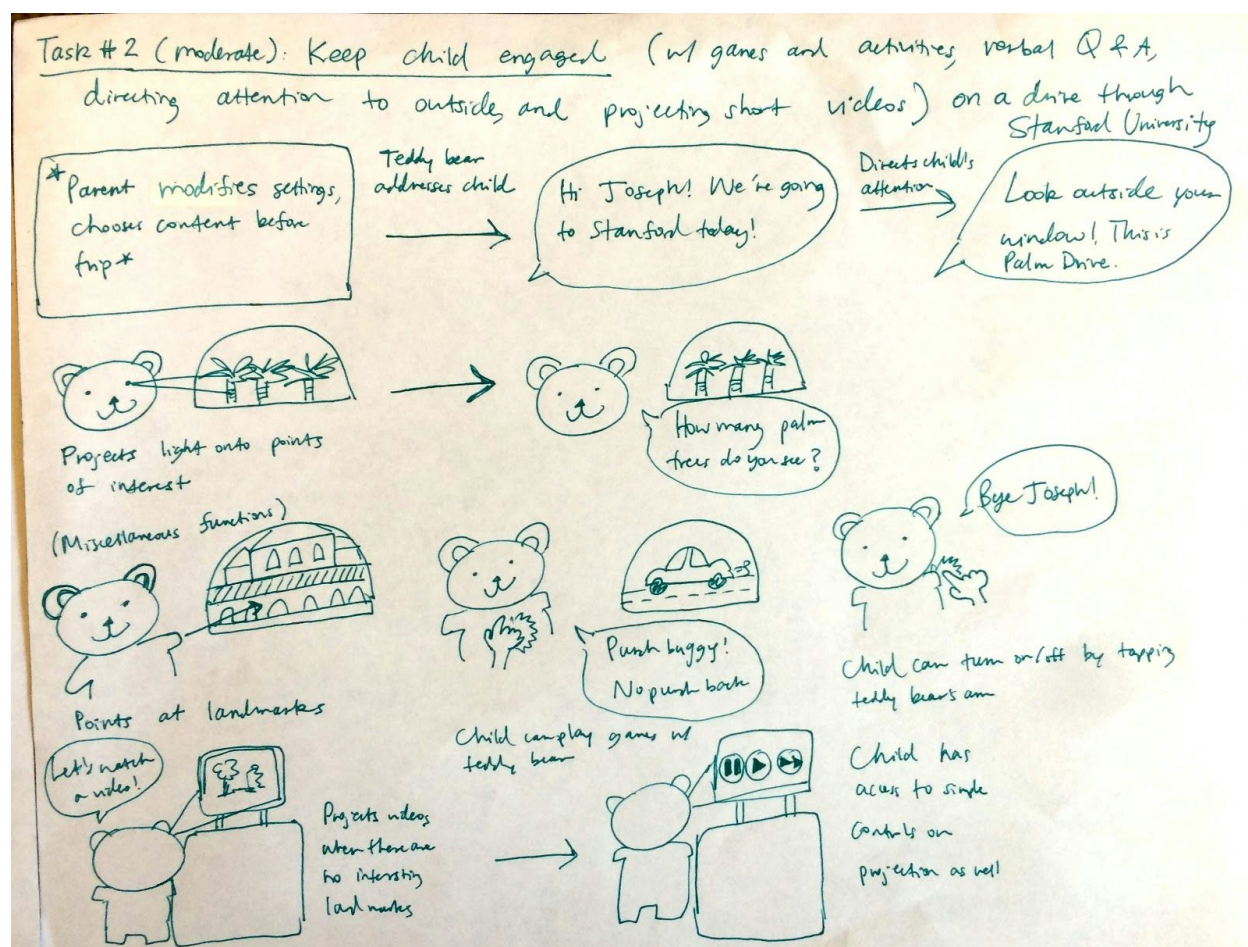 Task #2 (moderate): Keep child engaged (w/ games and activities, verbal Q & A,
directing attention to outside, and projecting short videos) on a drive through
Stanford University
*Parent modifies settings,
chooses content before
trip*
Teddy bear
addresses child
Hi Joseph! We're going
to Stanford today!
Directs child's
attention
Look outside your
window! This is
Palm Drive.
Projects light onto points
of interest
How many palm
trees do you see?
(Miscellaneous functions)
Points at landmarks
Punch buggy!
No punch back
Child can play games w/
teddy bear
Bye Joseph!
Child can turn on/off by tapping
teddy bear's arm
Let's watch
a video!
Projects videos
when there are
no interesting
landmarks
Child has
access to simple
controls on
projection as well